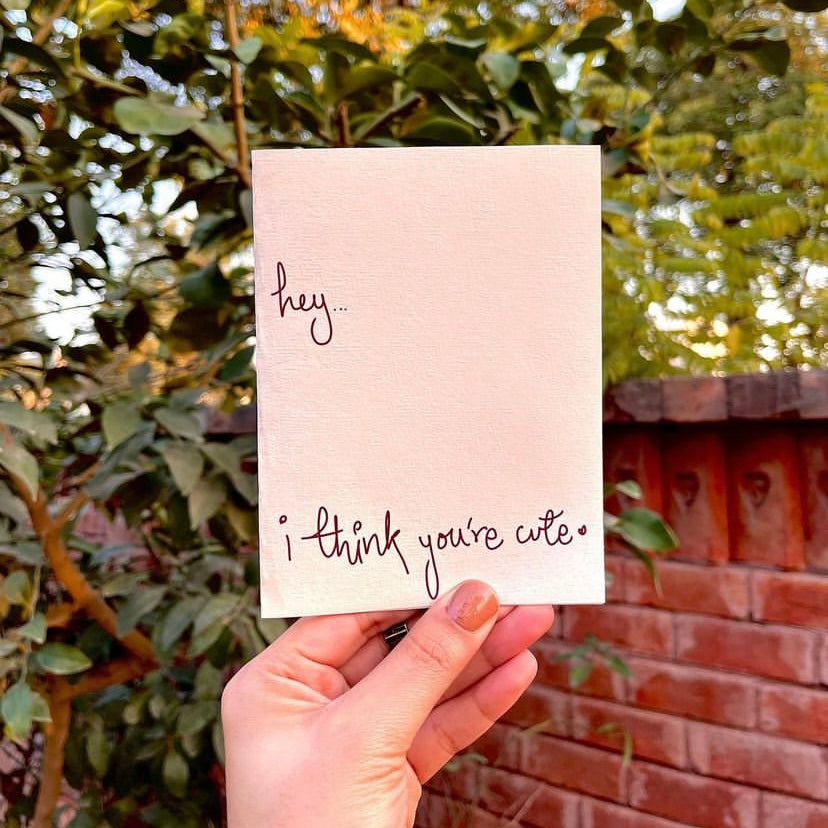 hey...
i think you're cute.